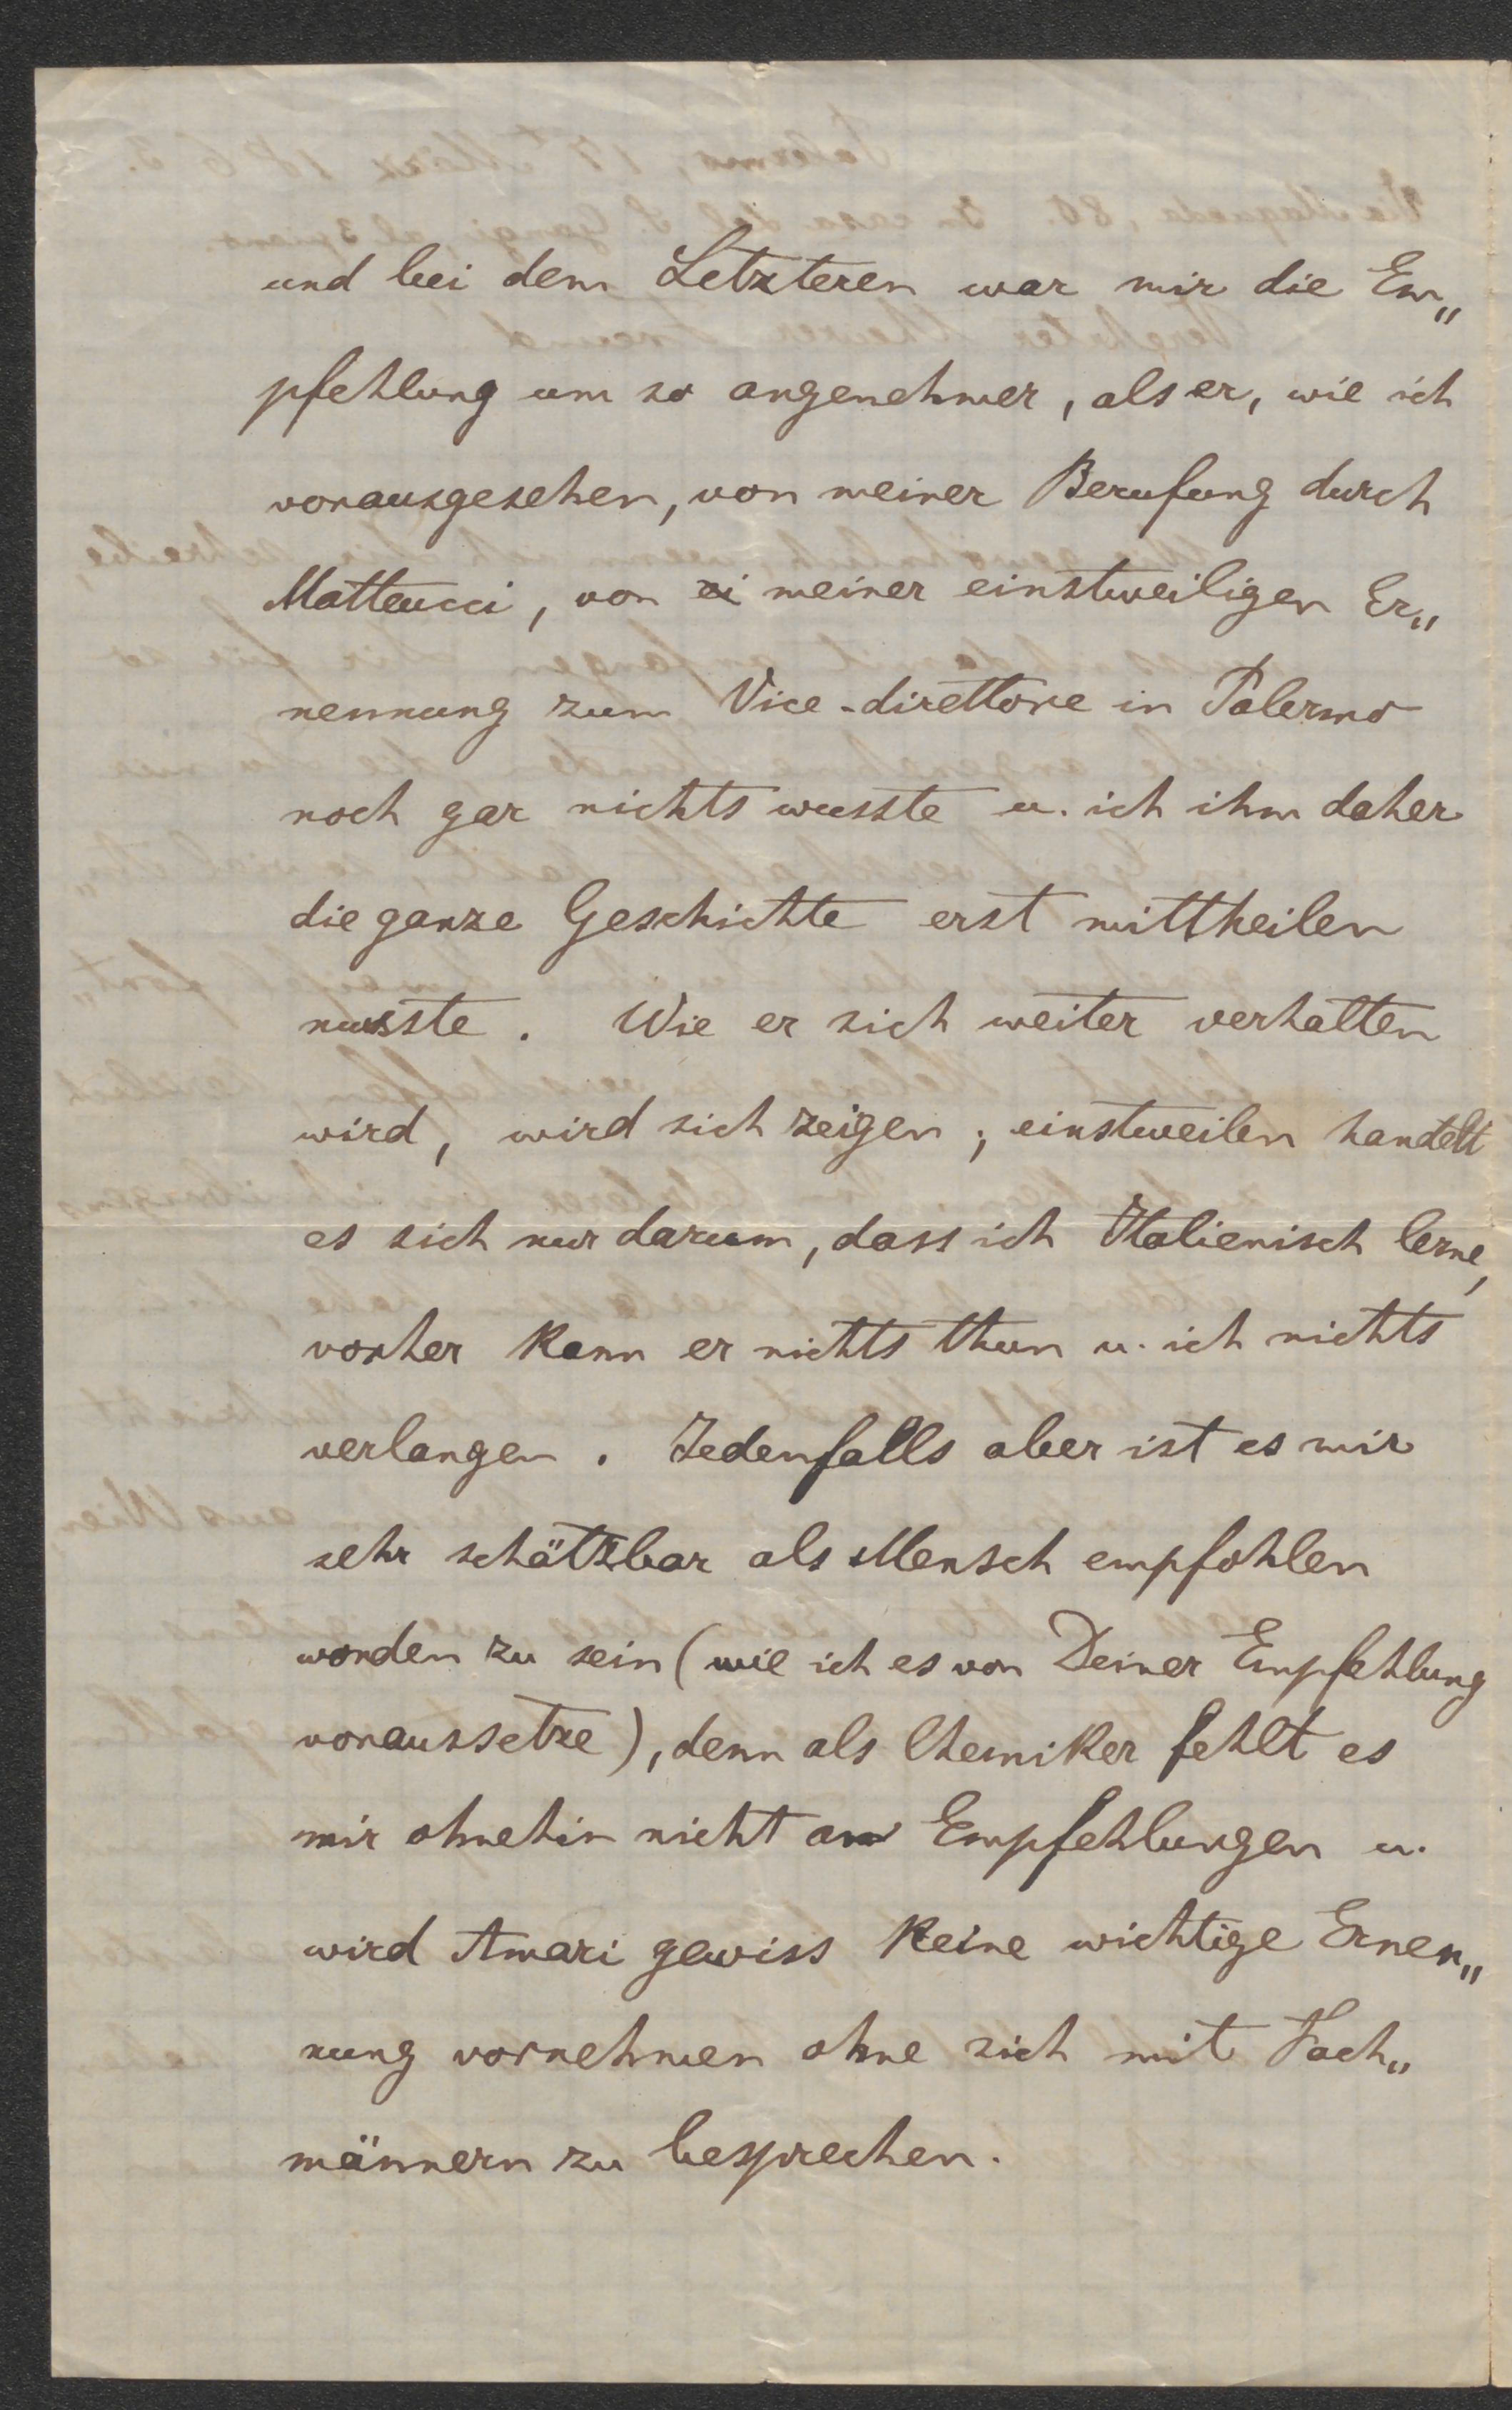 und bei dem Letzteren war mir die Em„
pfehlung um so angenehmer, als er, wie ich
vorausgesehen, von meiner Berufung durch
Matteucci, von ei meiner einstweiligen Er„
nennung zum Vice-direttore in Palermo
noch gar nichts wusste u. ich ihm daher
die ganze Geschichte erst mittheilen
musste. Wie er sich weiter verhalten
wird, wird sich zeigen; einstweilen handelt
es sich nur darum, dass ich Italienisch lerne,
vorher kann er nichts thun u. ich nichts
verlangen. Jedenfalls aber ist es mir
sehr schätzbar als Mensch empfohlen
worden zu sein (wie ich es von Deiner Empfehlung
voraussetze), denn als Chemiker fehlt es
mir ohnehin nicht an Empfehlungen u.
wird Amari gewiss keine wichtige Ernen„
nung vornehmen ohne sich mit Fach„
männern zu besprechen.